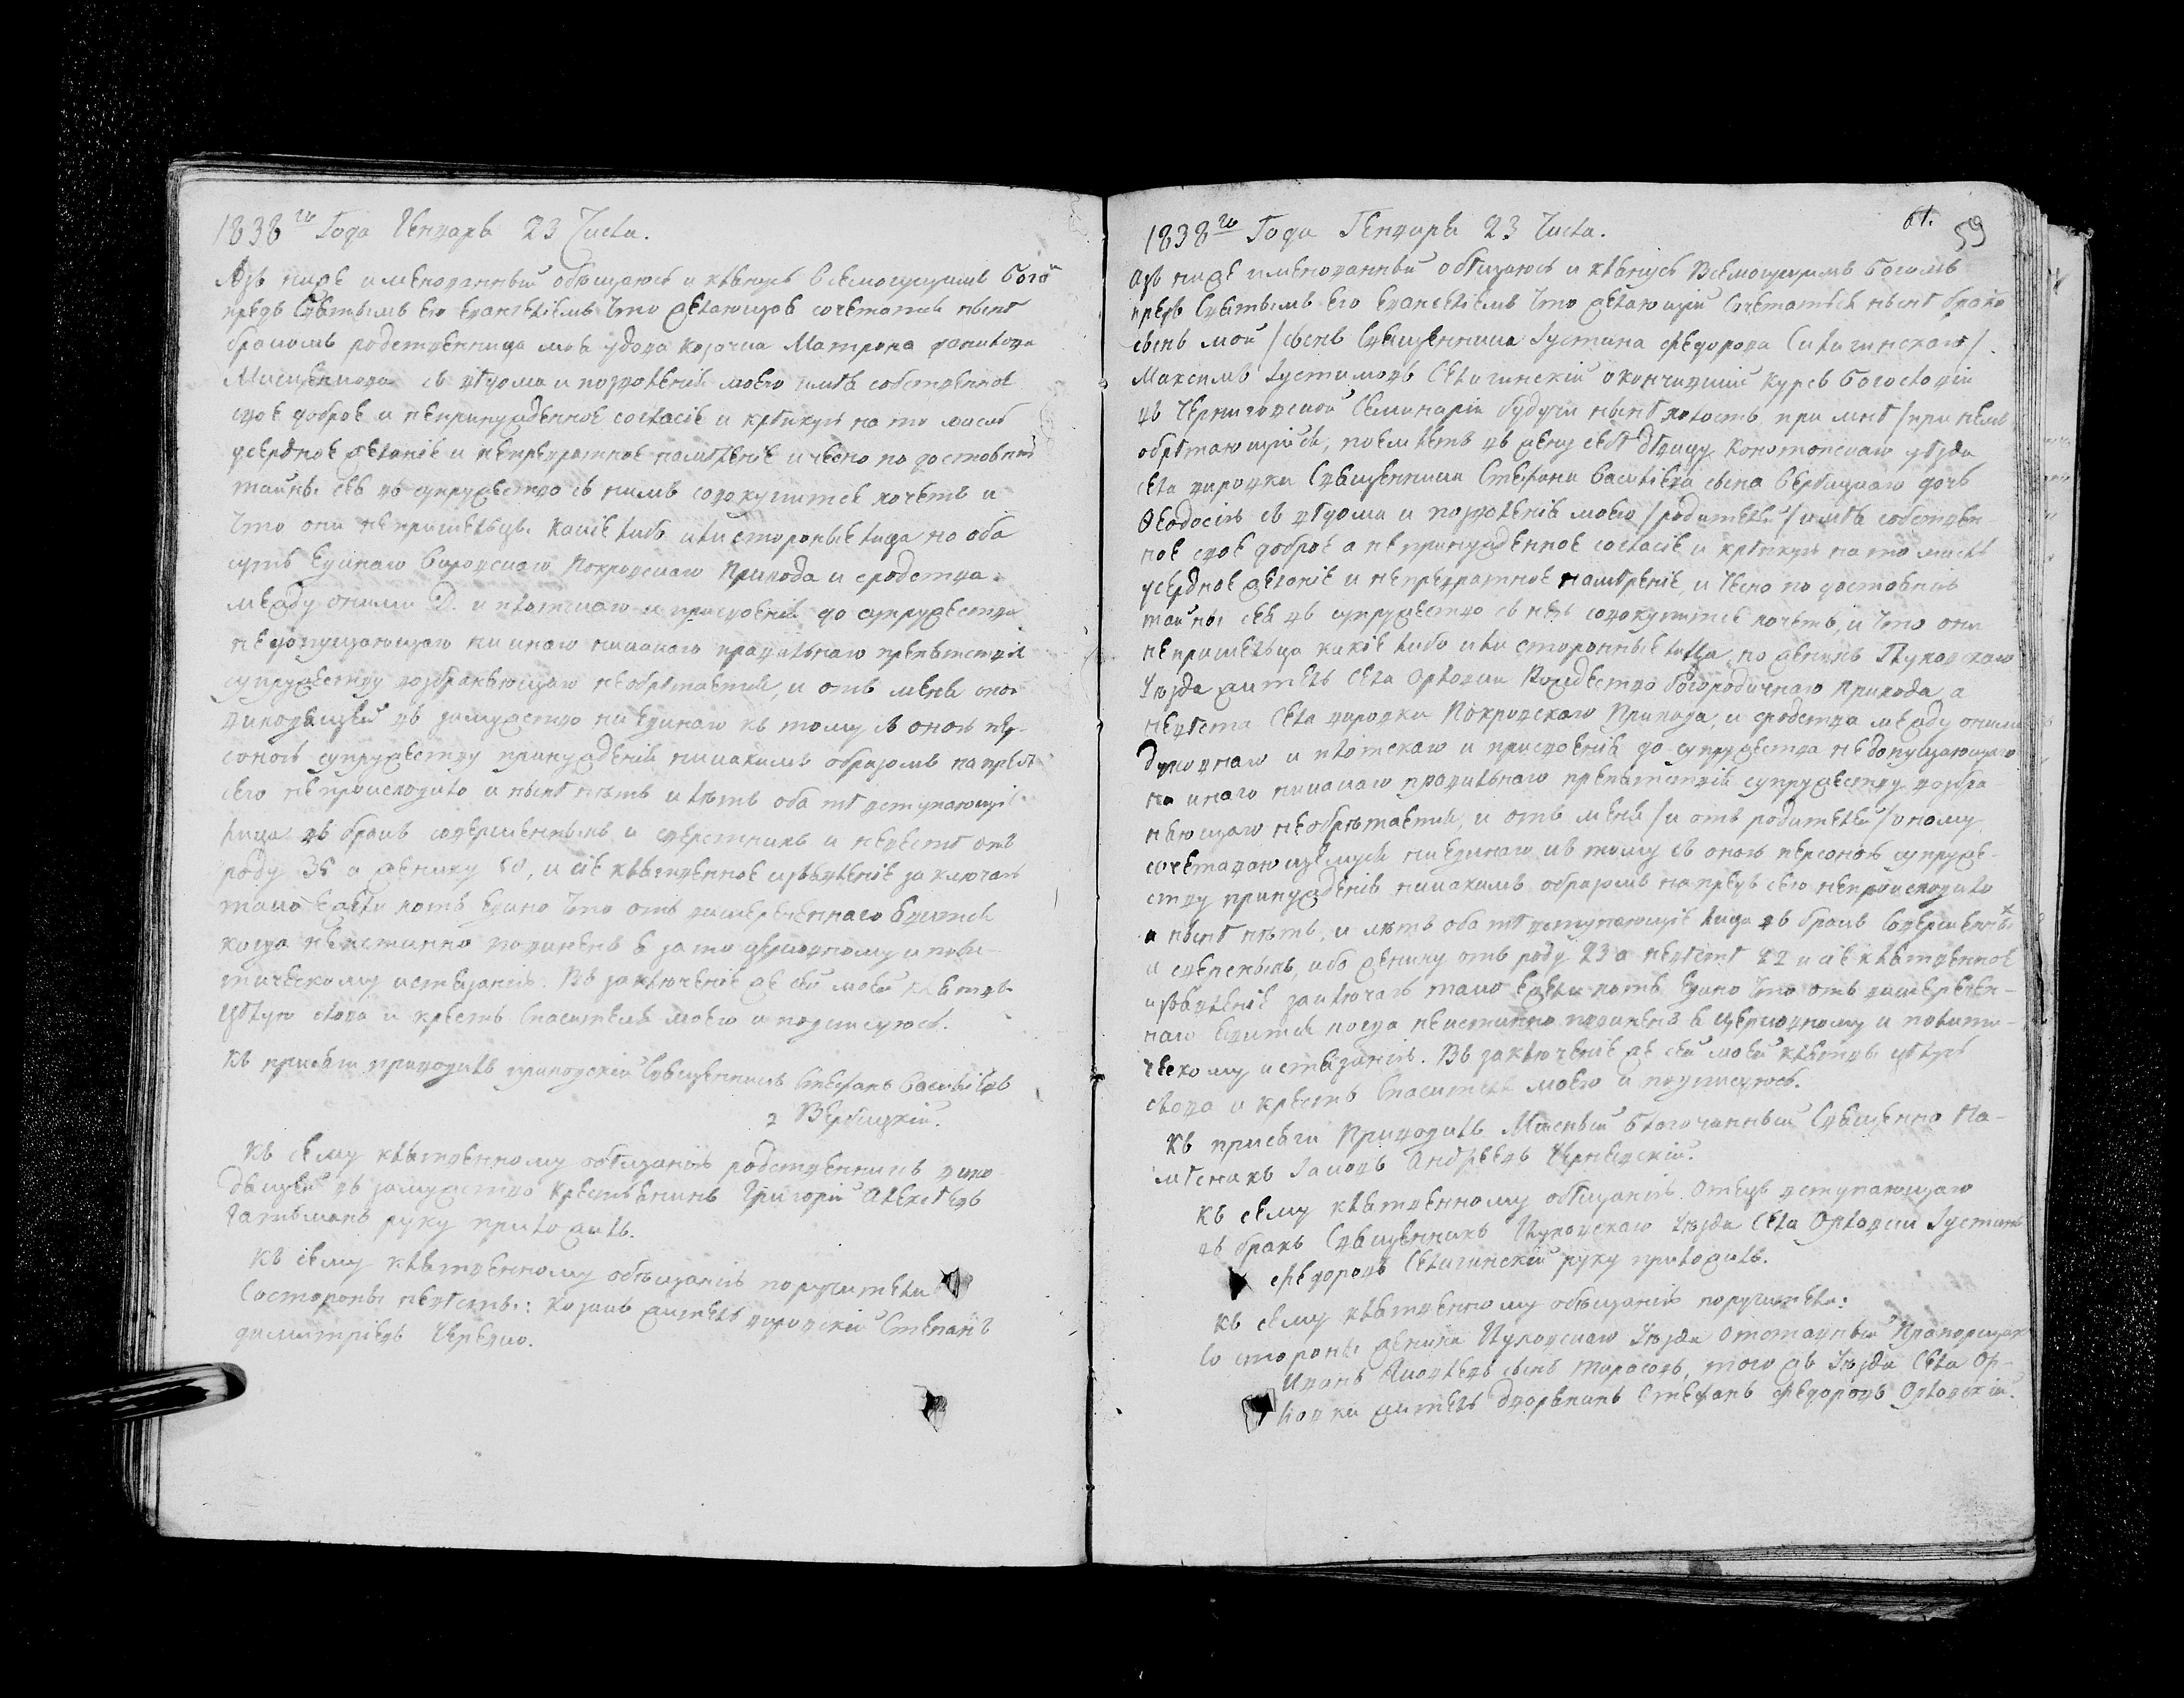 1838го Года Генваря 23 Числа.
Азъ ниже именованный обѣщаюсь и клянусь всемогущимъ Богом
предъ Святымъ его Евангеліемъ Что желающая сочетатись нынѣ
бракомъ родственница моя вдова козачка Матрона
съ вѣдома и позволенія моего имѣя собственное
свое доброе и непринужденное согласіе и крѣпкую на то мысль
усердное желаніе и непревратное намѣреніе и чесно по достоянію
тайны сея въ супружество съ нимъ совокупится хочетъ и
Что они непришельцы какіе либо или сторонніе лица но оба
суть Единаго Вировскаго Покровскаго Прихода и сродства
между оними Д. и плотскаго и присвоенія до супружества
недопущающаго ни инаго никакого правильнаго препятствія
супружеству возбраняющаго необрѣтается, и отъ мене оной
виходящей въ замужство ни единаго къ тому съ оною пер-
соною супружеству принужденія никакимъ образомъ напредъ
сего непроисходило и нынѣ нѣтъ и лѣтъ оба тѣ вступающіе
лица въ бракъ совершенныхъ и сверстникъ и невестѣ отъ
роду 35 а жениху 50, и сіе клятвенное изъявленіе заключаю
тако Ежели хотя Едино Что отъ вишереченнаго Явится
когда неистинно повиненъ я за то церковному и поли-
тическому истязанію. Въ заключеніе же сей моей клятвы
Цѣлую слова и крестъ Спасителя моего и подписуюсь.
Къ присяги приводилъ приходскій Священникъ Стефанъ Василіевъ
Вербицкій.
Къ сему клятвенному обѣщанію родственникъ вихо-
дящей въ замужство Крестьянинъ Григорій Алексѣевъ
руку приложилъ.
Къ сему клятвенному обѣщанію поручители
Состороны невѣсты: козакъ житель вировскій Степанъ
димитріевъ Чередко.
61.
59
1838го Года Генваря 23 Числа.
Азъ ниже именованный обѣщаюсь и клянусь Всемогущимъ Богомъ
предъ Святымъ Его Евангеліемъ Что желающій Сочетаться нынѣ брако
сынъ мой / сынъ Священника Іустина Федорова Силигинскаго /
Максимъ Іустиновъ Селигинскій окончившій курсъ Богословія
въ Черниговской Семинаріи будучи нынѣ холостъ при мнѣ / при немъ
обрѣтающійся, поемлетъ въ жену себѣ Дѣвицу Конотопскаго уѣзда
села вировки Священника Стефана Василіева сына Вербицкаго дочь
Феодосію съ вѣдома и позволенія моего / родителей / имѣя собствен-
ное свое доброе а не принужденное согласіе и крѣпкую на то мысль
усердное желаніе и непревратное намѣреніе, и чесно по достоянію
тайны сея въ супружество съ нею совокупится хочетъ, и Что они
непришельца какіе либо или сторонные лица, но женихъ Глуховскаго
Уѣзда житель села Орловки Рождество Богородичнаго Прихода а
невѣста Села вировки Покровскаго Прихода, и сродства между оними
Духовнаго и плотскаго и присвоенія до супружества недопущающаго
ни инаго никакого правильнаго препятствія супружеству возбра
няющаго необрѣтается, и отъ мене / и отъ родителей / оному
сочетавающемуся ниединаго къ тому съ оною персоною супруже-
ству принужденія никакимъ образомъ напредъ сего непроисходило
и нынѣ нѣтъ, и лѣтъ оба тѣ вступающіе лица въ бракъ Совершенны
и сверсныхъ, ибо жениху отъ роду 23 а невѣстѣ 22 и сіе клятвенное
изъявленіе заключаю тако Ежели хотя Едино Что отъ вишеречен-
наго Явится когда неистинно повиненъ я церковному и полити-
ческому истязанію. Въ заключеніе же сей моей клятвы цѣлую
слова и крестъ Спасителя моего и подписуюсь.
Къ присяги Приводилъ Мѣсный благочинный Священно На-
мѣсникъ Іаковъ Андреевъ
Къ сему клятвенному обѣщанію Отецъ вступающаго
въ бракъ Священникъ Глуховскаго Уѣзда Села Орловки Іустинъ
Федоровъ Селигинскій руку приложилъ.
Къ сему клятвенному обѣщанію поручители:
Со стороны жениха Глуховскаго Уѣзда Отставный Прапорщикъ
Иванъ Яковлевъ сынъ Тарасовъ, того жъ Уѣзда Села Ор-
ловки житель Дворянинъ Стефанъ Федоровъ Орловскій.